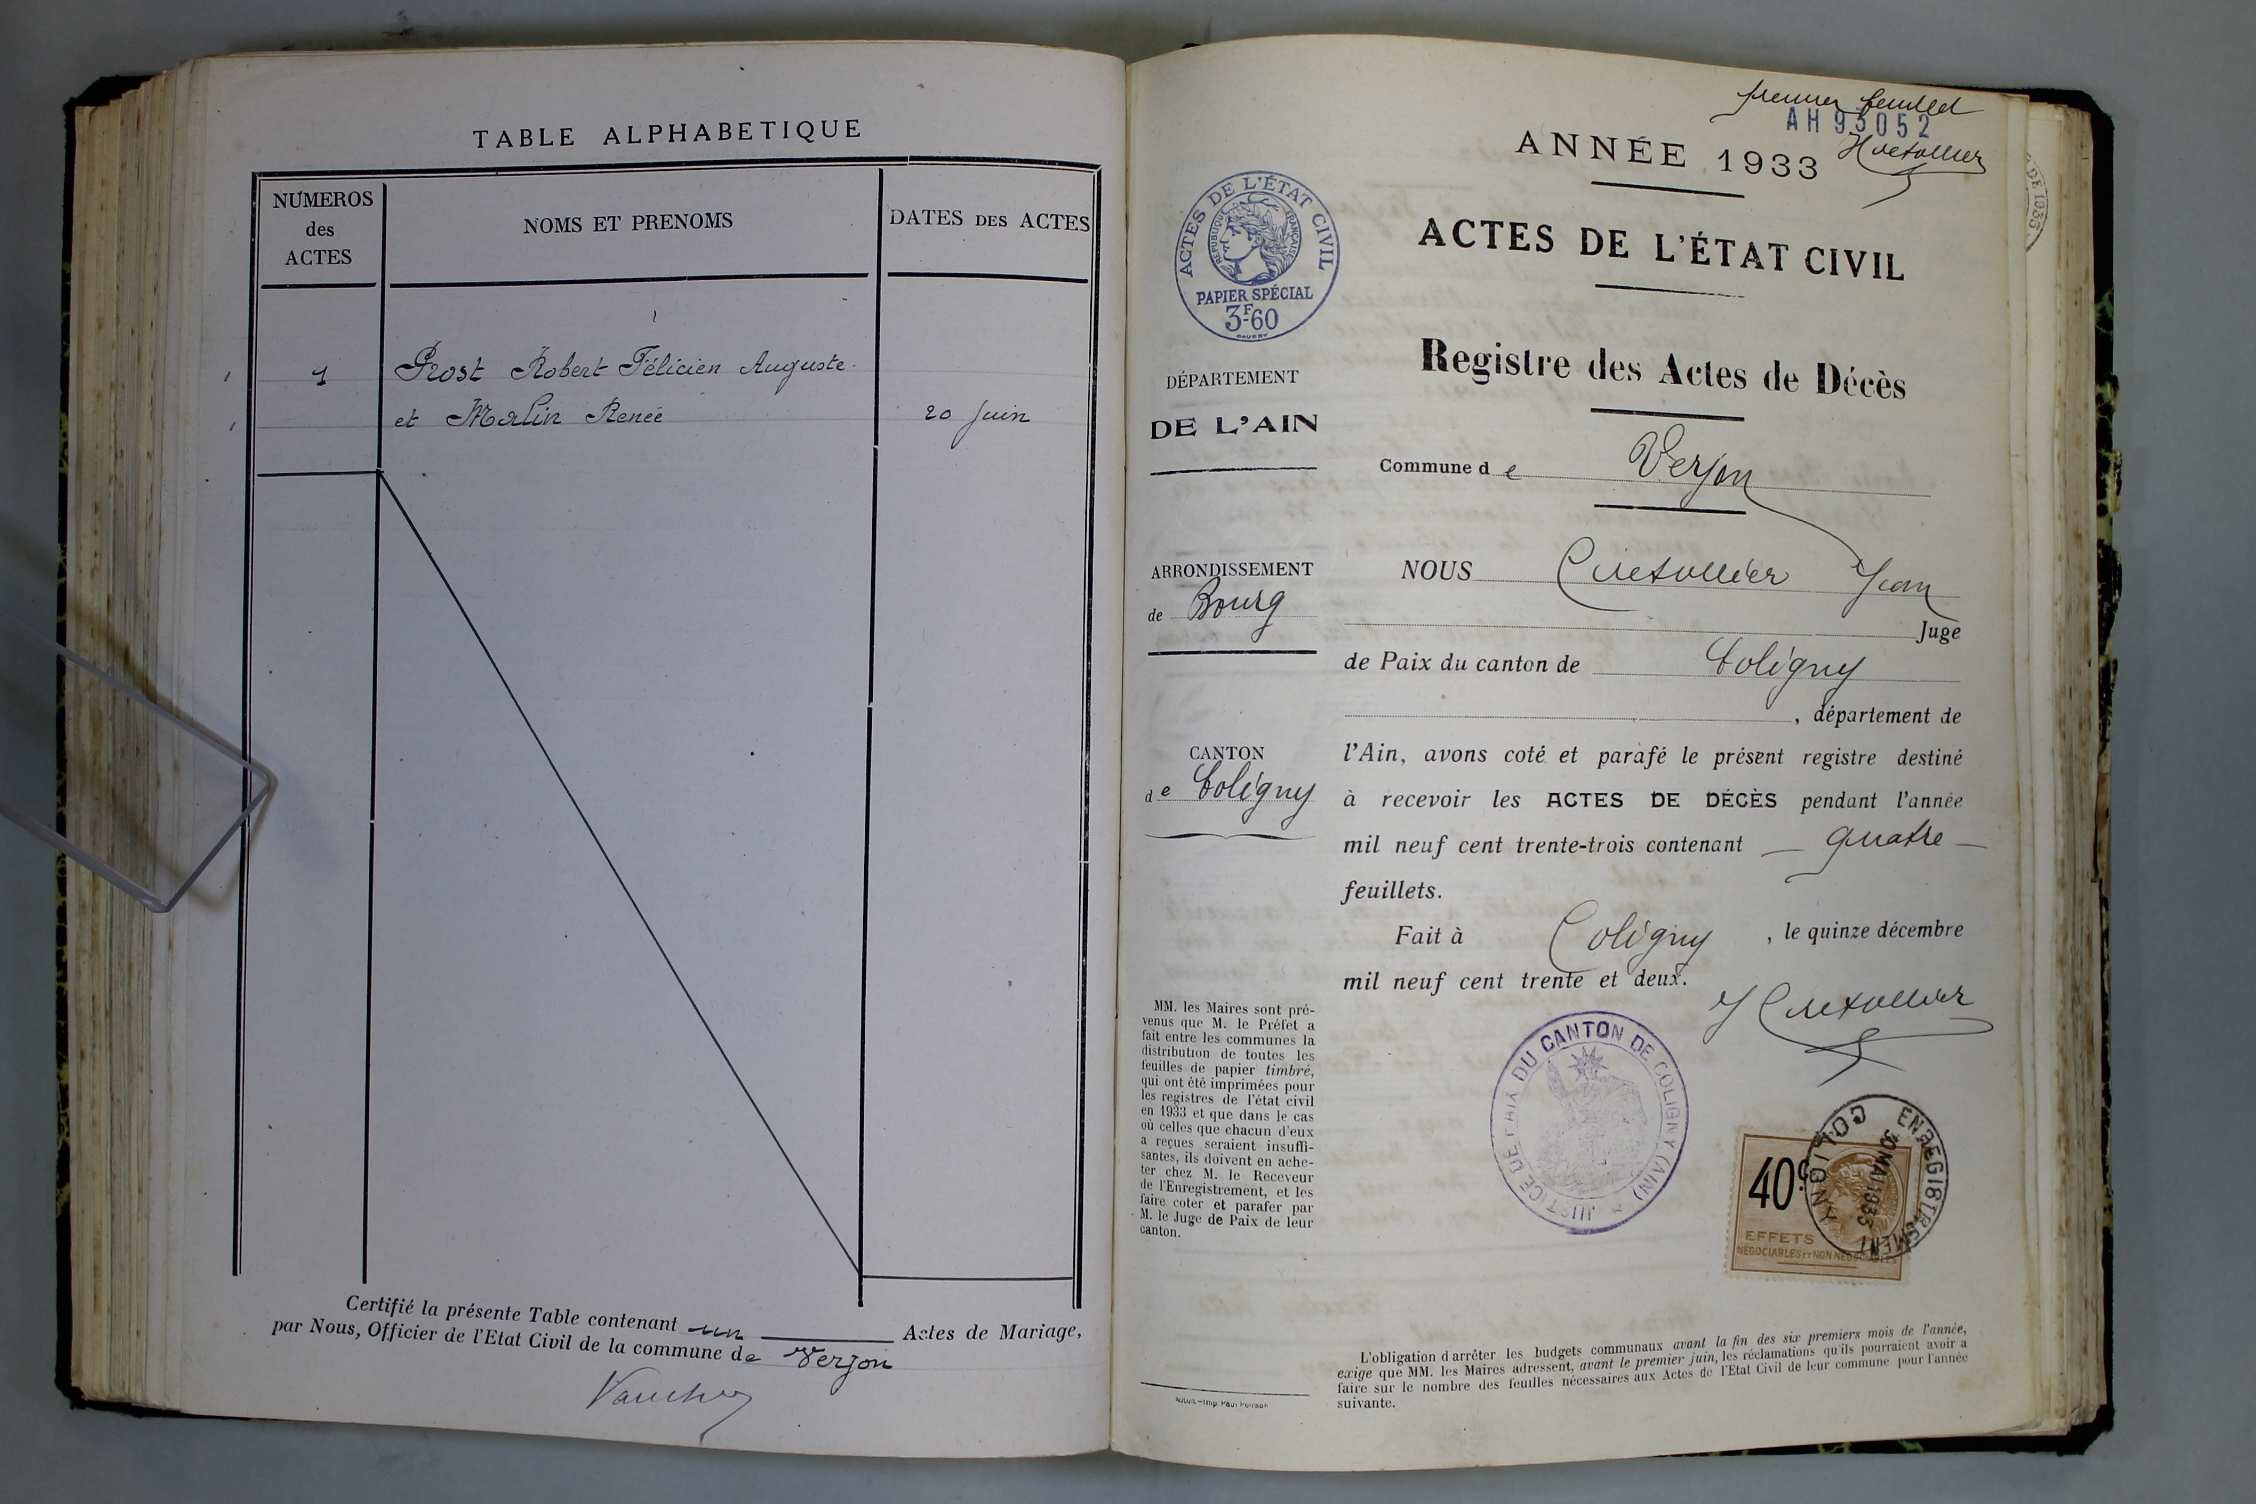 TABLE ALPHABETIQUE
NUMEROS
des
ACTES
NOMS ET PRENOMS
DATES DES ACTES
1 Prost Robert Félicien Auguste
et Merlin Renée 20 Juin
Certifié la présente Table contenant un Actes de Mariage,
par Nous, Officier de l'Etat Civil de la commune de Verjon
premier feuillet
AH 93052
ANNÉE 1933
ACTES DE L'ÉTAT CIVIL
RÉPUBLIQUE FRANÇAISE
PAPIER SPÉCIAL
3F-60
ACTES DE L'ÉTAT CIVIL
Registre des Actes de Décès
DÉPARTEMENT
DE L'AIN
Commune de Verjon
ARRONDISSEMENT
de Bourg
NOUS Cretallier Jean
Juge
de Paix du canton de Coligny
, département de
CANTON
de Coligny
l'Ain, avons coté et parafé le présent registre destiné
à recevoir les ACTES DE DÉCÈS pendant l'année
mil neuf cent trente-trois contenant — quatre —
feuillets.
Fait à Coligny, le quinze décembre
mil neuf cent trente et deux.
MM. les Maires sont pré-
venus que M. le Préfet a
fait entre les communes la
distribution de toutes les
feuilles de papier timbré,
qui ont été imprimées pour
les registres de l'état civil
en 1933 et que dans le cas
où celles que chacun d'eux
a reçues seraient insuffi-
santes, ils doivent en ache-
ter chez M. le Receveur
de l'Enregistrement, et les
faire coter et parafer par
M. le Juge de Paix de leur
canton.
JUSTICE DE PAIX DU CANTON DE COLIGNY (AIN)
ENREGISTREMENT
COLIGNY
MAI 1933
40c
EFFETS
NÉGOCIABLES ET NON NÉGOCIABLES
L'obligation d'arrêter les budgets communaux avant la fin des six premiers mois de l'année,
exige que MM. les Maires adressent, avant le premier juin, les réclamations qu'ils pourraient avoir a
faire sur le nombre des feuilles nécessaires aux Actes de l'Etat Civil de leur commune pour l'année
suivante.